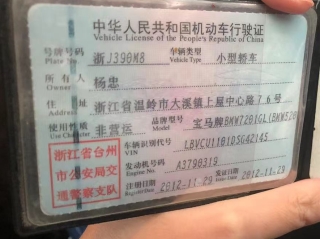 中华人民共和国机动车行驶证
Vehicle License of the People's Republic of China
号牌号码 浙J390M8 车辆类型 小型轿车
Plate No. Vehicle Type
所有人 杨忠
Owner
住址 浙江省温岭市大溪镇上屋中心路76号
Address
使用性质 非营运 品牌型号 宝马牌BMW7201GL(BMW520
浙江省台州 车辆识别代号 LBVCU1101DSG42145
VIN
市公安局交 发动机号码 A3790319
Engine No.
通警察支队 注册日期 2012-11-29 发证日期 2012-11-29
Register Date